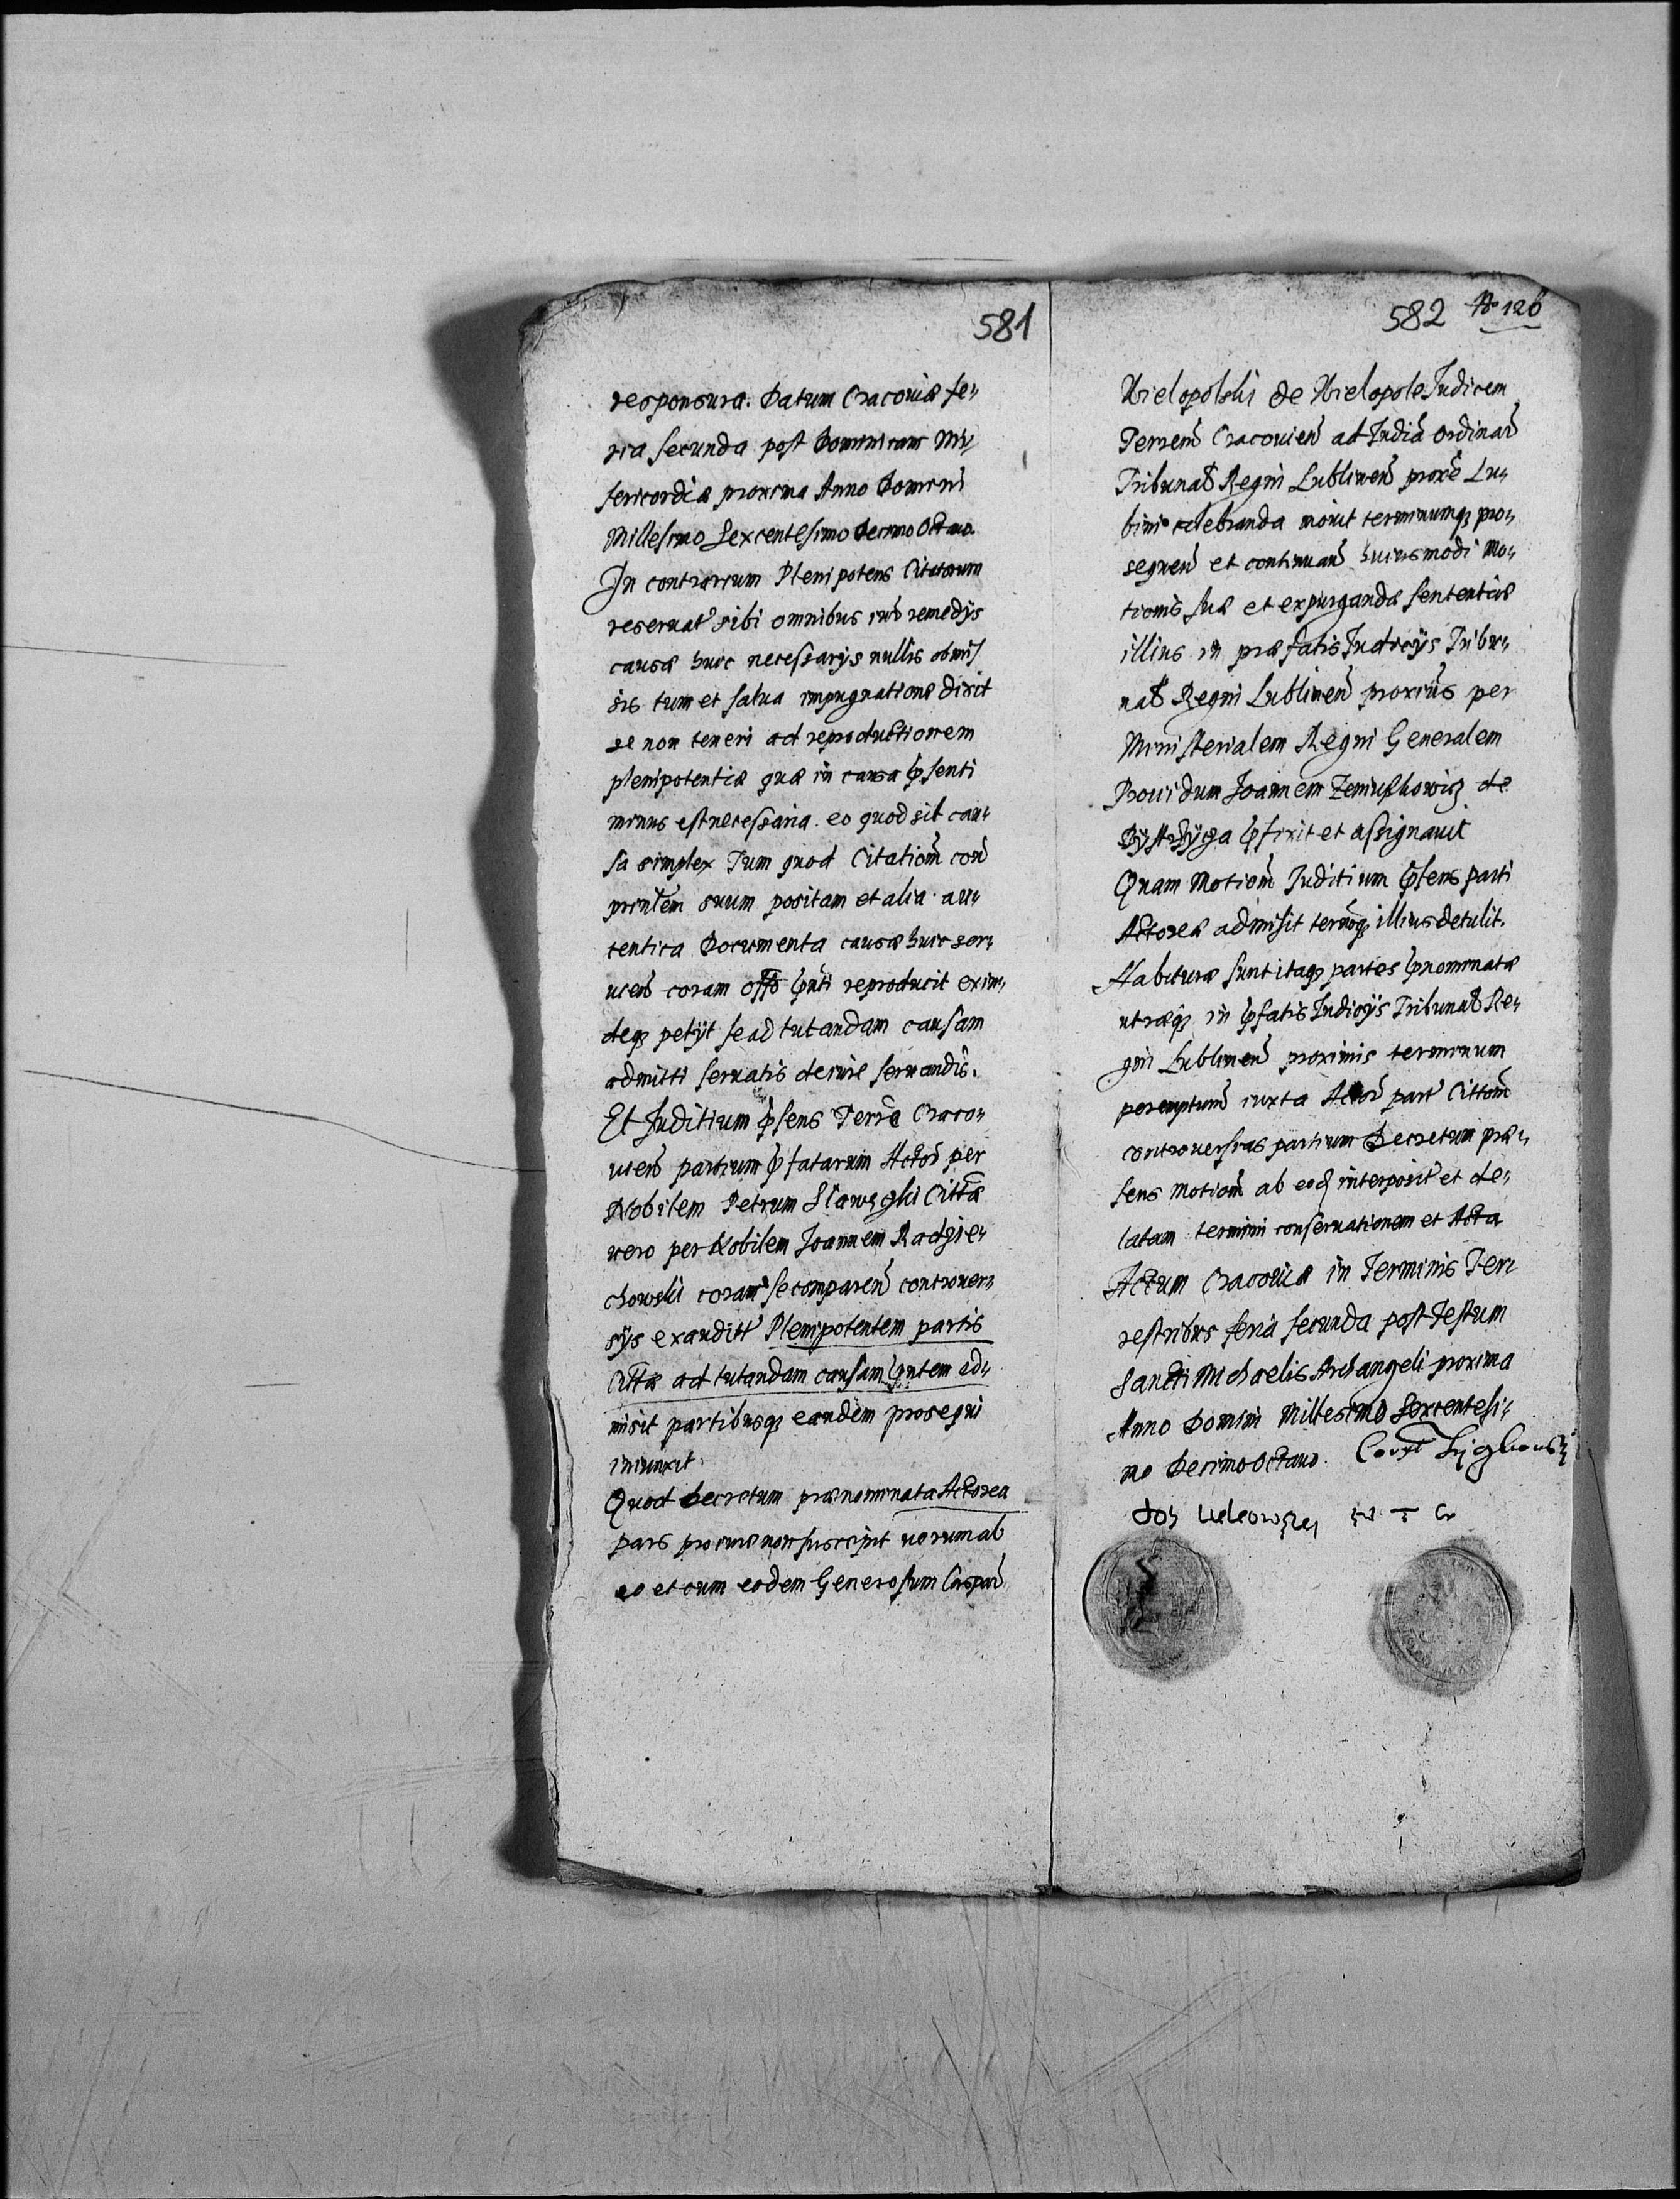 581
responsura. Datum Cracoviæ fe„
ria secunda post Dominicam Mi„
sericordiæ proxima Anno Domini
Millesimo Sexcentesimo Decimo Octavo.
In contrarium Plenipotens Citatorum
reseruat sibi omnibus iuris remedijs
causæ huic necessarijs nullis obmis
sis tum et salua impugnatione dixit
se non teneri ad reproductionem
plenipotentiæ quæ in causa p̄senti
minus est necessaria eo quod sit cau„
sa simplex Tum quod Citationē con
prin̄tem suum positam et alia au„
tentica Documenta causæ huic ser„
uien̄ coram offō p̄nti reproducit exin„
deq; petijt se ad tutandam causam
admitti seruatis de iure seruandis.
Et Juditium p̄sens Terrē Craco„
uien̄ partium p̄fatarum Actor̄ per
Nobilem Petrum Slawęcki Citt̄æ
uero per Nobilem Joannem Radzie„
chowski coram se comparen̄ controuer„
sijs exauditis Plenipotentem partis
Citt̄æ ad tutandam causam p̄ntem ad„
misit partibusq; eandem prosequi
iniunxit.
Quod decretum prænominata Actorea
pars pro iure non suscepit uerum ab
eo et cum eodem Generosum Caspar̄
582 No 126
Wielopolski de Wielopole Judicem
Terren̄ Cracouien̄ ad Judiā Ordinar̄
Tribunal̄ Regni Lublinen̄ proxē Lu„
blini celebranda mouit terminumq; pro„
sequen̄ et continuan̄ huiusmodi Mo„
tionis suæ et expurgandæ sententiæ
illius in præfatis Judicijs Tribu„
nal̄ Regni Lublinen̄ proximis per
Ministerialem Regni Generalem
Prouidum Joannem Zemis̄kowicz de
Bystrzycza p̄fixit et assignauit
Quam Motionē Juditium p̄sens parti
Actoreæ admisit termq; illius detulit.
Habituræ sunt itaq; partes p̄nominatæ
utræq; in p̄fatis Judicijs Tribunal̄ Re„
gni Lublinen̄ proximis terminum
peremptum̄ iuxta Actor̄ part̄ Cittom̄
controuersias partium Decretum præ„
sens Motionē ab eod̄ interposit̄ et de„
latam termini conseruationem et Acta
Actum Cracouiæ in Terminis Ter„
restribus feria secunda post Festum
Sancti Michaelis Archangeli proxima
Anno Domini Millesimo Sexcentesi„
mo Decimo Octavo.